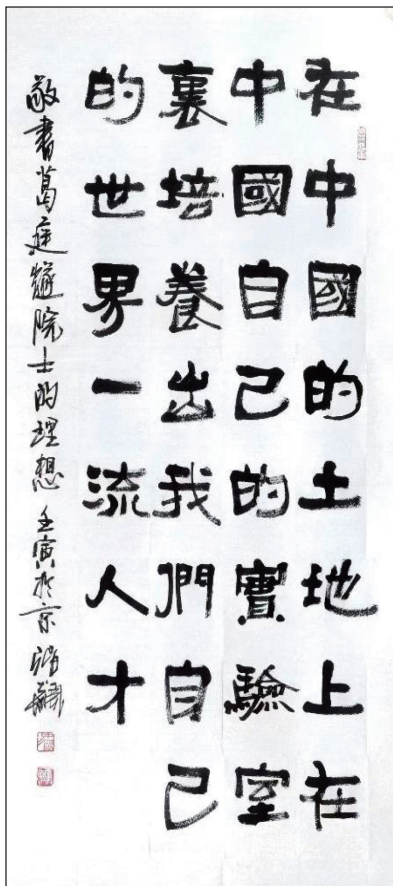 在中國的土地上在
中國自己的實驗室
裏培養出我們自己
的世界一流人才
敬書葛庭燧院士的理想 壬寅於京